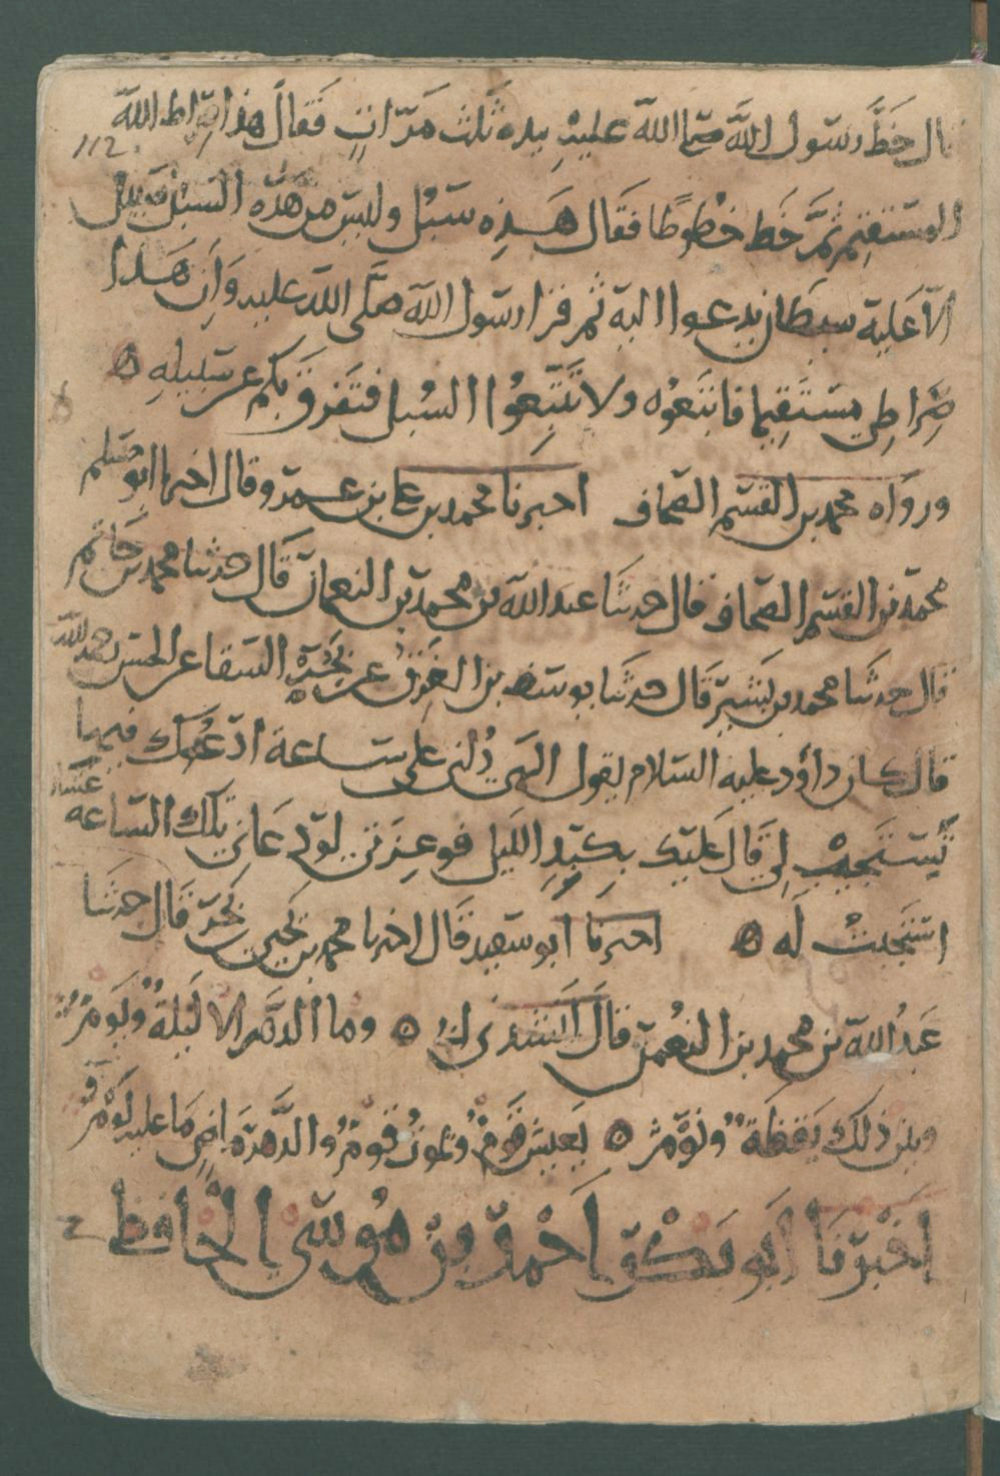 قال خط رسول الله صلى الله عليه بيده ثلث مرات فقال هذا صراط الله
112.
المستقيم ثم خط خطوطا فقال هذه سبل وليس من هذه السبل سبيل
الا عليه شيطان يدعوا اليه ثم قرا رسول الله صلى الله عليه وأن هذا
صراطي مستقيما فاتبعوه ولا تتبعوا السبل فتفرق بكم عن سبيله ه
ورواه محمد بن القسم الصحاف اخبرنا محمد بن علي بن عمر وقال اخبرنا ابو مسلم
محمد بن القسم الصحاف قال حدثنا عبد الله بن محمد بن النعمان قال حدثنا محمد بن حاتم
قال حدثنا محمد بن بشير قال حدثنا يوسف بن عن السقا عن الحسن رحمه الله
قال كان داؤد عليه السلام يقول الهي دلني على ساعة ادعوك فيها
تستجيب لي قال عليك بكبد الليل فوعزتي لو دعاني تلك الساعة عشار
استجبت له ه اخبرنا ابو سعيد قال اخبرنا محمد بن يحيى قال حدثنا
عبد الله بن محمد بن النعمن قال انشدني ابي ه وما الدهر الا ليلة ويومر
وبين ذلك يقظة ونومر ه يعيش قوم ويموت قوم والدهر ماض ما عليه لومر
اخبرنا ابو بكر احمد بن موسى الحافظ